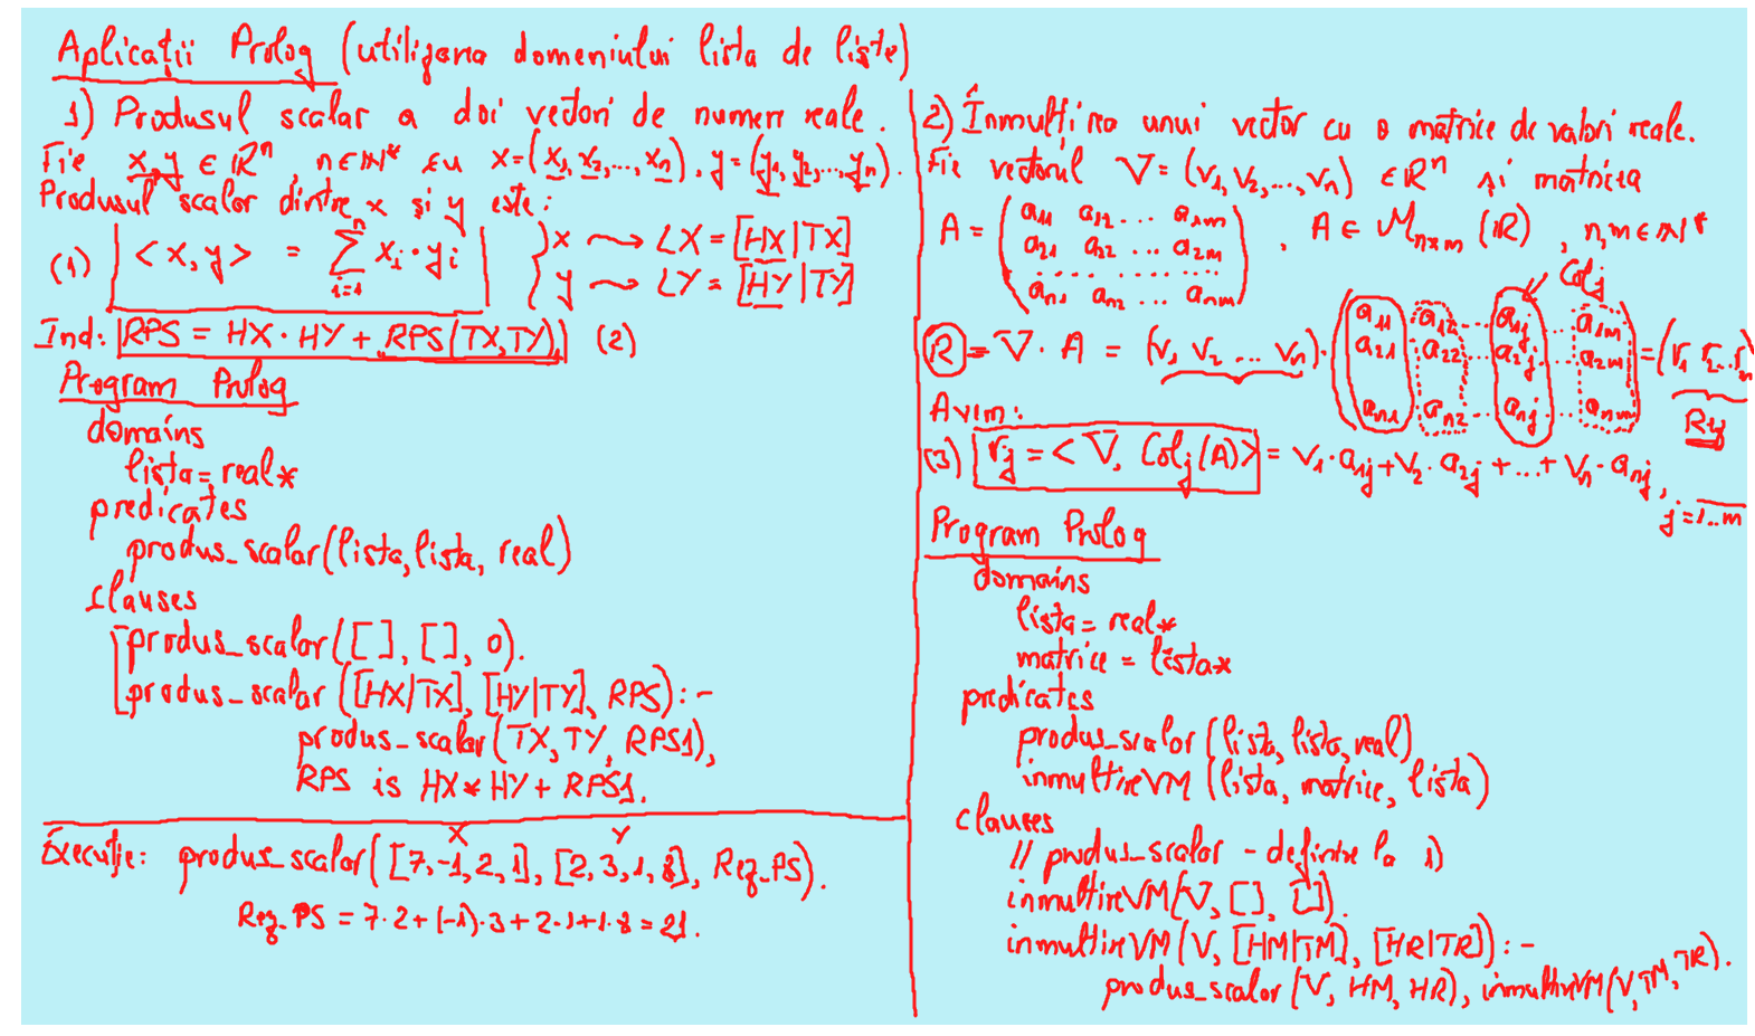 Aplicații Prolog (utilizarea domeniului lista de liste)
1) Produsul scalar a doi vectori de numere reale.
Fie x,y ∈ ℝⁿ, n∈ℕ* cu x=(x₁, x₂,..., xₙ), y=(y₁, y₂,..., yₙ).
Produsul scalar dintre x și y este:
(1) <x,y> = Σⁿᵢ₌₁ xᵢ·yᵢ
x ⇝ LX = [HX|TX]
y ⇝ LY = [HY|TY]
Ind: RPS = HX·HY + RPS(TX,TY) (2)
Program Prolog
domains
lista=real*
predicates
produs_scalar(lista,lista, real)
clauses
produs_scalar([], [], 0).
produs_scalar([HX|TX], [HY|TY], RPS):-
produs_scalar(TX,TY, RPS1),
RPS is HX*HY + RPS1.
X Y
Execuție: produs_scalar([7,-1,2,1], [2,3,1,8], Rez_PS).
Rez_PS = 7·2+(-1)·3+2·1+1·8=21.
2) Înmulțirea unui vector cu o matrice de valori reale.
Fie vectorul V=(v₁,v₂,...,vₙ) ∈ℝⁿ și matricea
A = (a₁₁ a₁₂ ... a₁ₘ
a₂₁ a₂₂ ... a₂ₘ
..........
aₙ₁ aₙ₂ ... aₙₘ) , A∈ Mₙₓₘ(ℝ), n,m∈ℕ*
Colⱼ
R = V·A = (v₁ v₂ ... vₙ)·(a₁₁ a₁₂ ... a₁ⱼ ... a₁ₘ
a₂₁ a₂₂ ... a₂ⱼ ... a₂ₘ
aₙ₁ aₙ₂ ... aₙⱼ ... aₙₘ) = (r₁ r₂...rₘ)
Avem:
(3) rⱼ = <V, Colⱼ(A)> = v₁·a₁ⱼ+v₂·a₂ⱼ+...+vₙ·aₙⱼ,
j=1..m
Program Prolog
domains
lista=real*
matrice = lista*
predicates
produs_scalar(lista,lista,real)
inmultireVM(lista, matrice, lista)
clauses
// produs_scalar - definire la 1)
inmultireVM(V, [], []).
inmultireVM(V, [HM|TM], [HR|TR]):-
produs_scalar(V, HM, HR), inmultireVM(V,TM,TR).